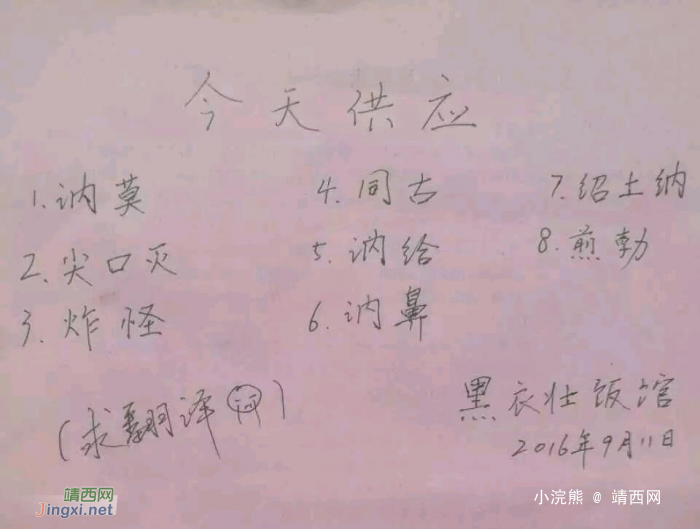 今天供应
1.讷莫
4.同古
7.绍土纳
2.尖口灭
5.讷给
8.煎勃
3.炸怪
6.讷鼻
(求翻译)
黑衣壮饭馆
2016年9月11日
靖西网
Jingxi.net
小浣熊 @ 靖西网